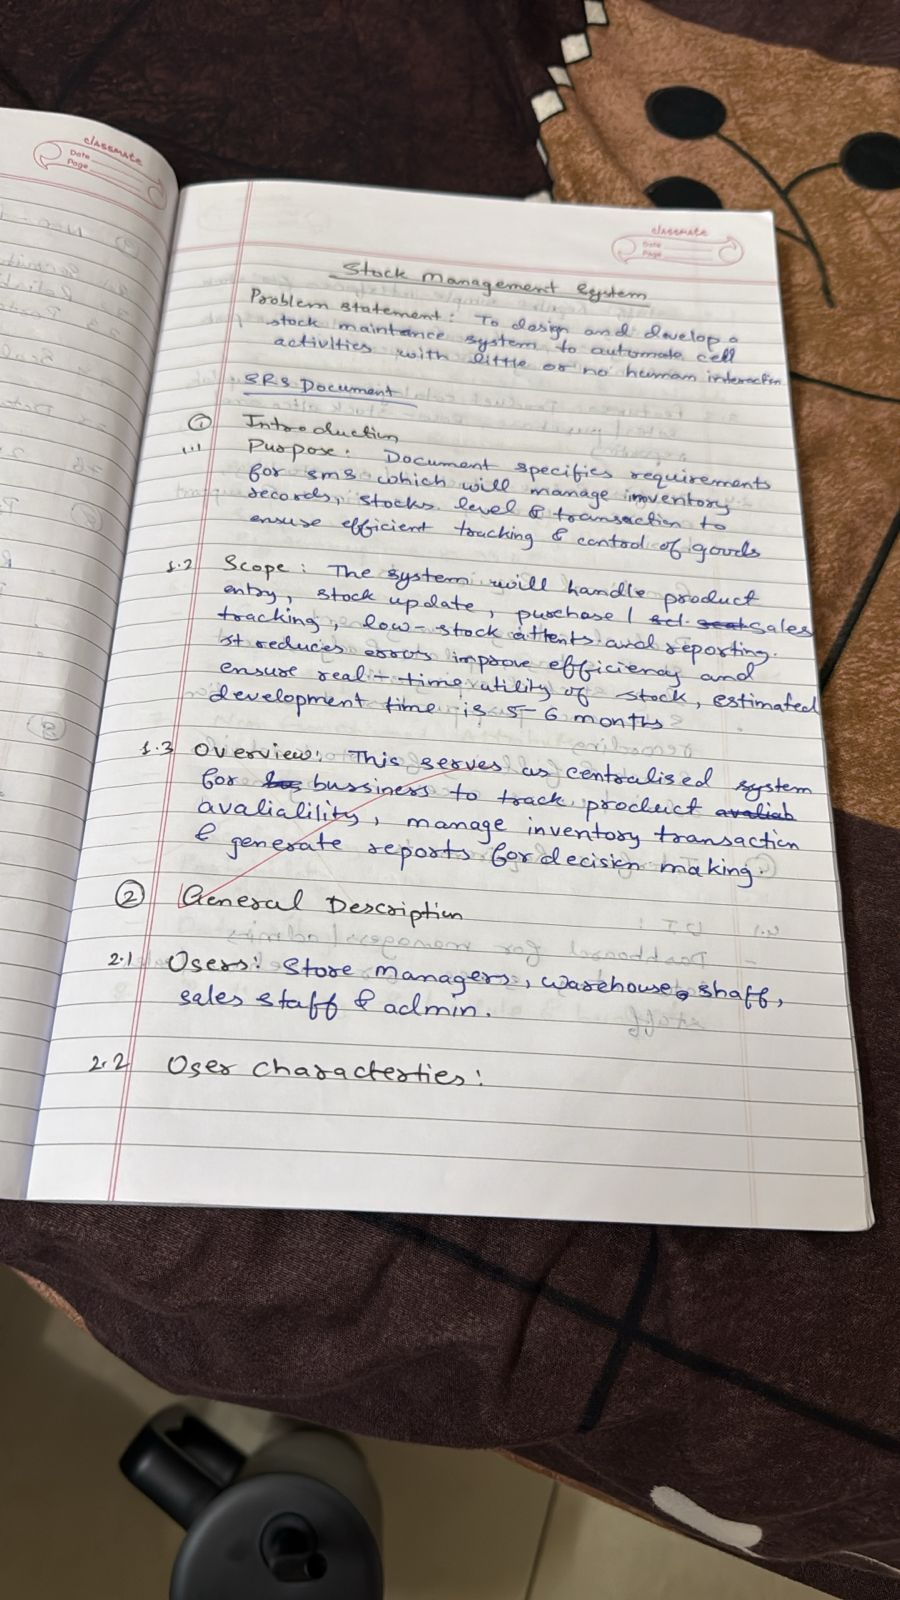 classmate
Date
Page
classmate
Date
Page
Stock Management System
Problem statement: To design and develop a
stock maintance system to automate cell
activities with little or no human interaction
SRS Document
① Introduction
1.1 Purpose: Document specifies requirements
for sms which will manage inventory
records, stocks level & transaction to
ensure efficient tracking & control of goods
1.2 Scope: The system will handle product
entry, stock update, purchase / sales
tracking, low-stock attents and reporting.
It reduces errors improve efficiency and
ensure real-time utility of stock, estimated
development time is 5-6 months
1.3 Overview: This serves as centralised system
for bussiness to track product
avalialility, manage inventory transaction
& generate reports for decision making.
② General Description
2.1 Users: Store managers, warehouse shaff,
sales staff & admin.
2.2 User characterties: